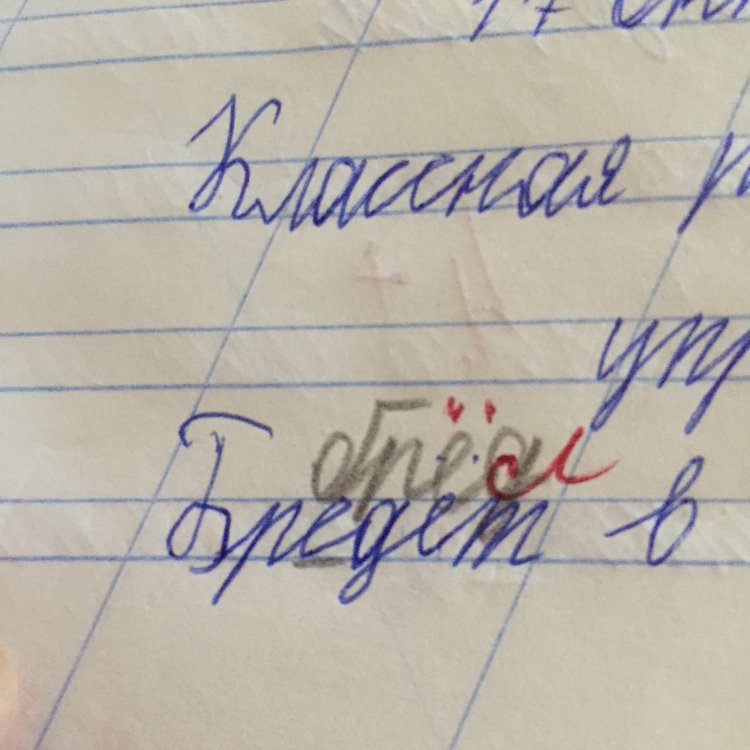 17
Классная
упр
брёл
Бредет в